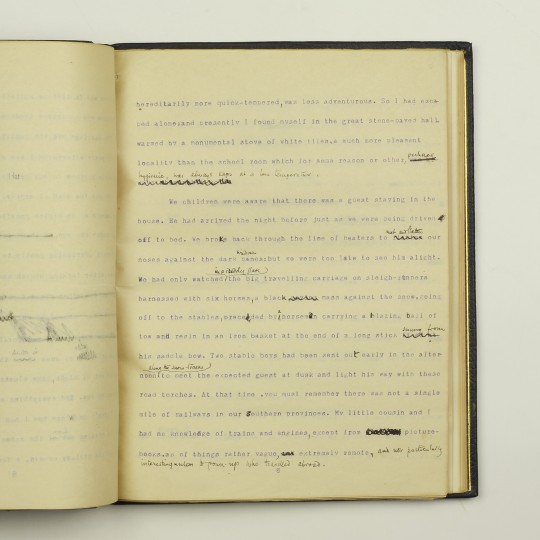 hereditarily more quick-tempered,was less adventurous. So I had esca-
ped alone:and presently I found myself in the great stone-paved hall
warmed by a monumental stove of white tiles.a much more pleasant
locality than the school room which for some reason or other, perhaps
hygienic, was always kept at a low temperature.
We children were aware that there was a guest staying in the
house. He had arrived the night before just as we were being driven
off to bed. We broke back through the line of beaters to our
noses against the dark panes;but we were too late to see him alight.
in a ruddy glare
We had only watched the big travelling carriage on sleigh-runners
harnessed with six horses, a black mass against the snow.going
off to the stables, preceded by horseman carrying a blazing ball of
tow and resin in an iron basket at the end of a long stick from
his saddle bow. Two stable boys had been sent out early in the after-
along the snow-tracks
noon to meet the expected guest at dusk and light his way with these
road torches. At that time ,you must remember there was not a single
mile of railways in our southern provinces. My little cousin and I
had no knowledge of trains and engines,except from picture-
books.as of things rather vague, extremely remote, and not particularly
interesting unless to grown-ups who travelled abroad.
6